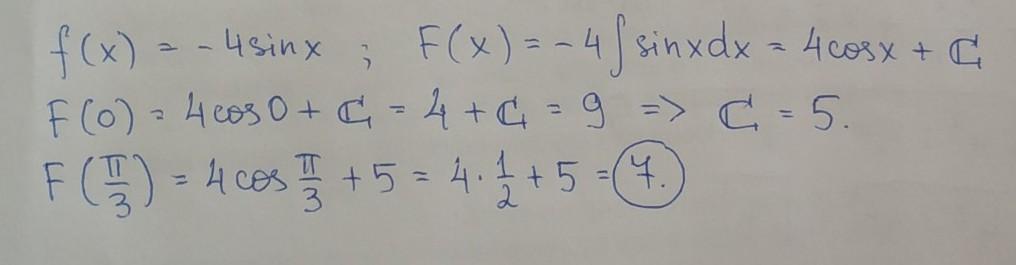 f(x) = -4sinx ; F(x) = -4∫sinxdx = 4cosx + C
F(0) = 4cos0 + C = 4 + C = 9 => C = 5.
F(π/3) = 4cos π/3 + 5 = 4·1/2 + 5 = 7.